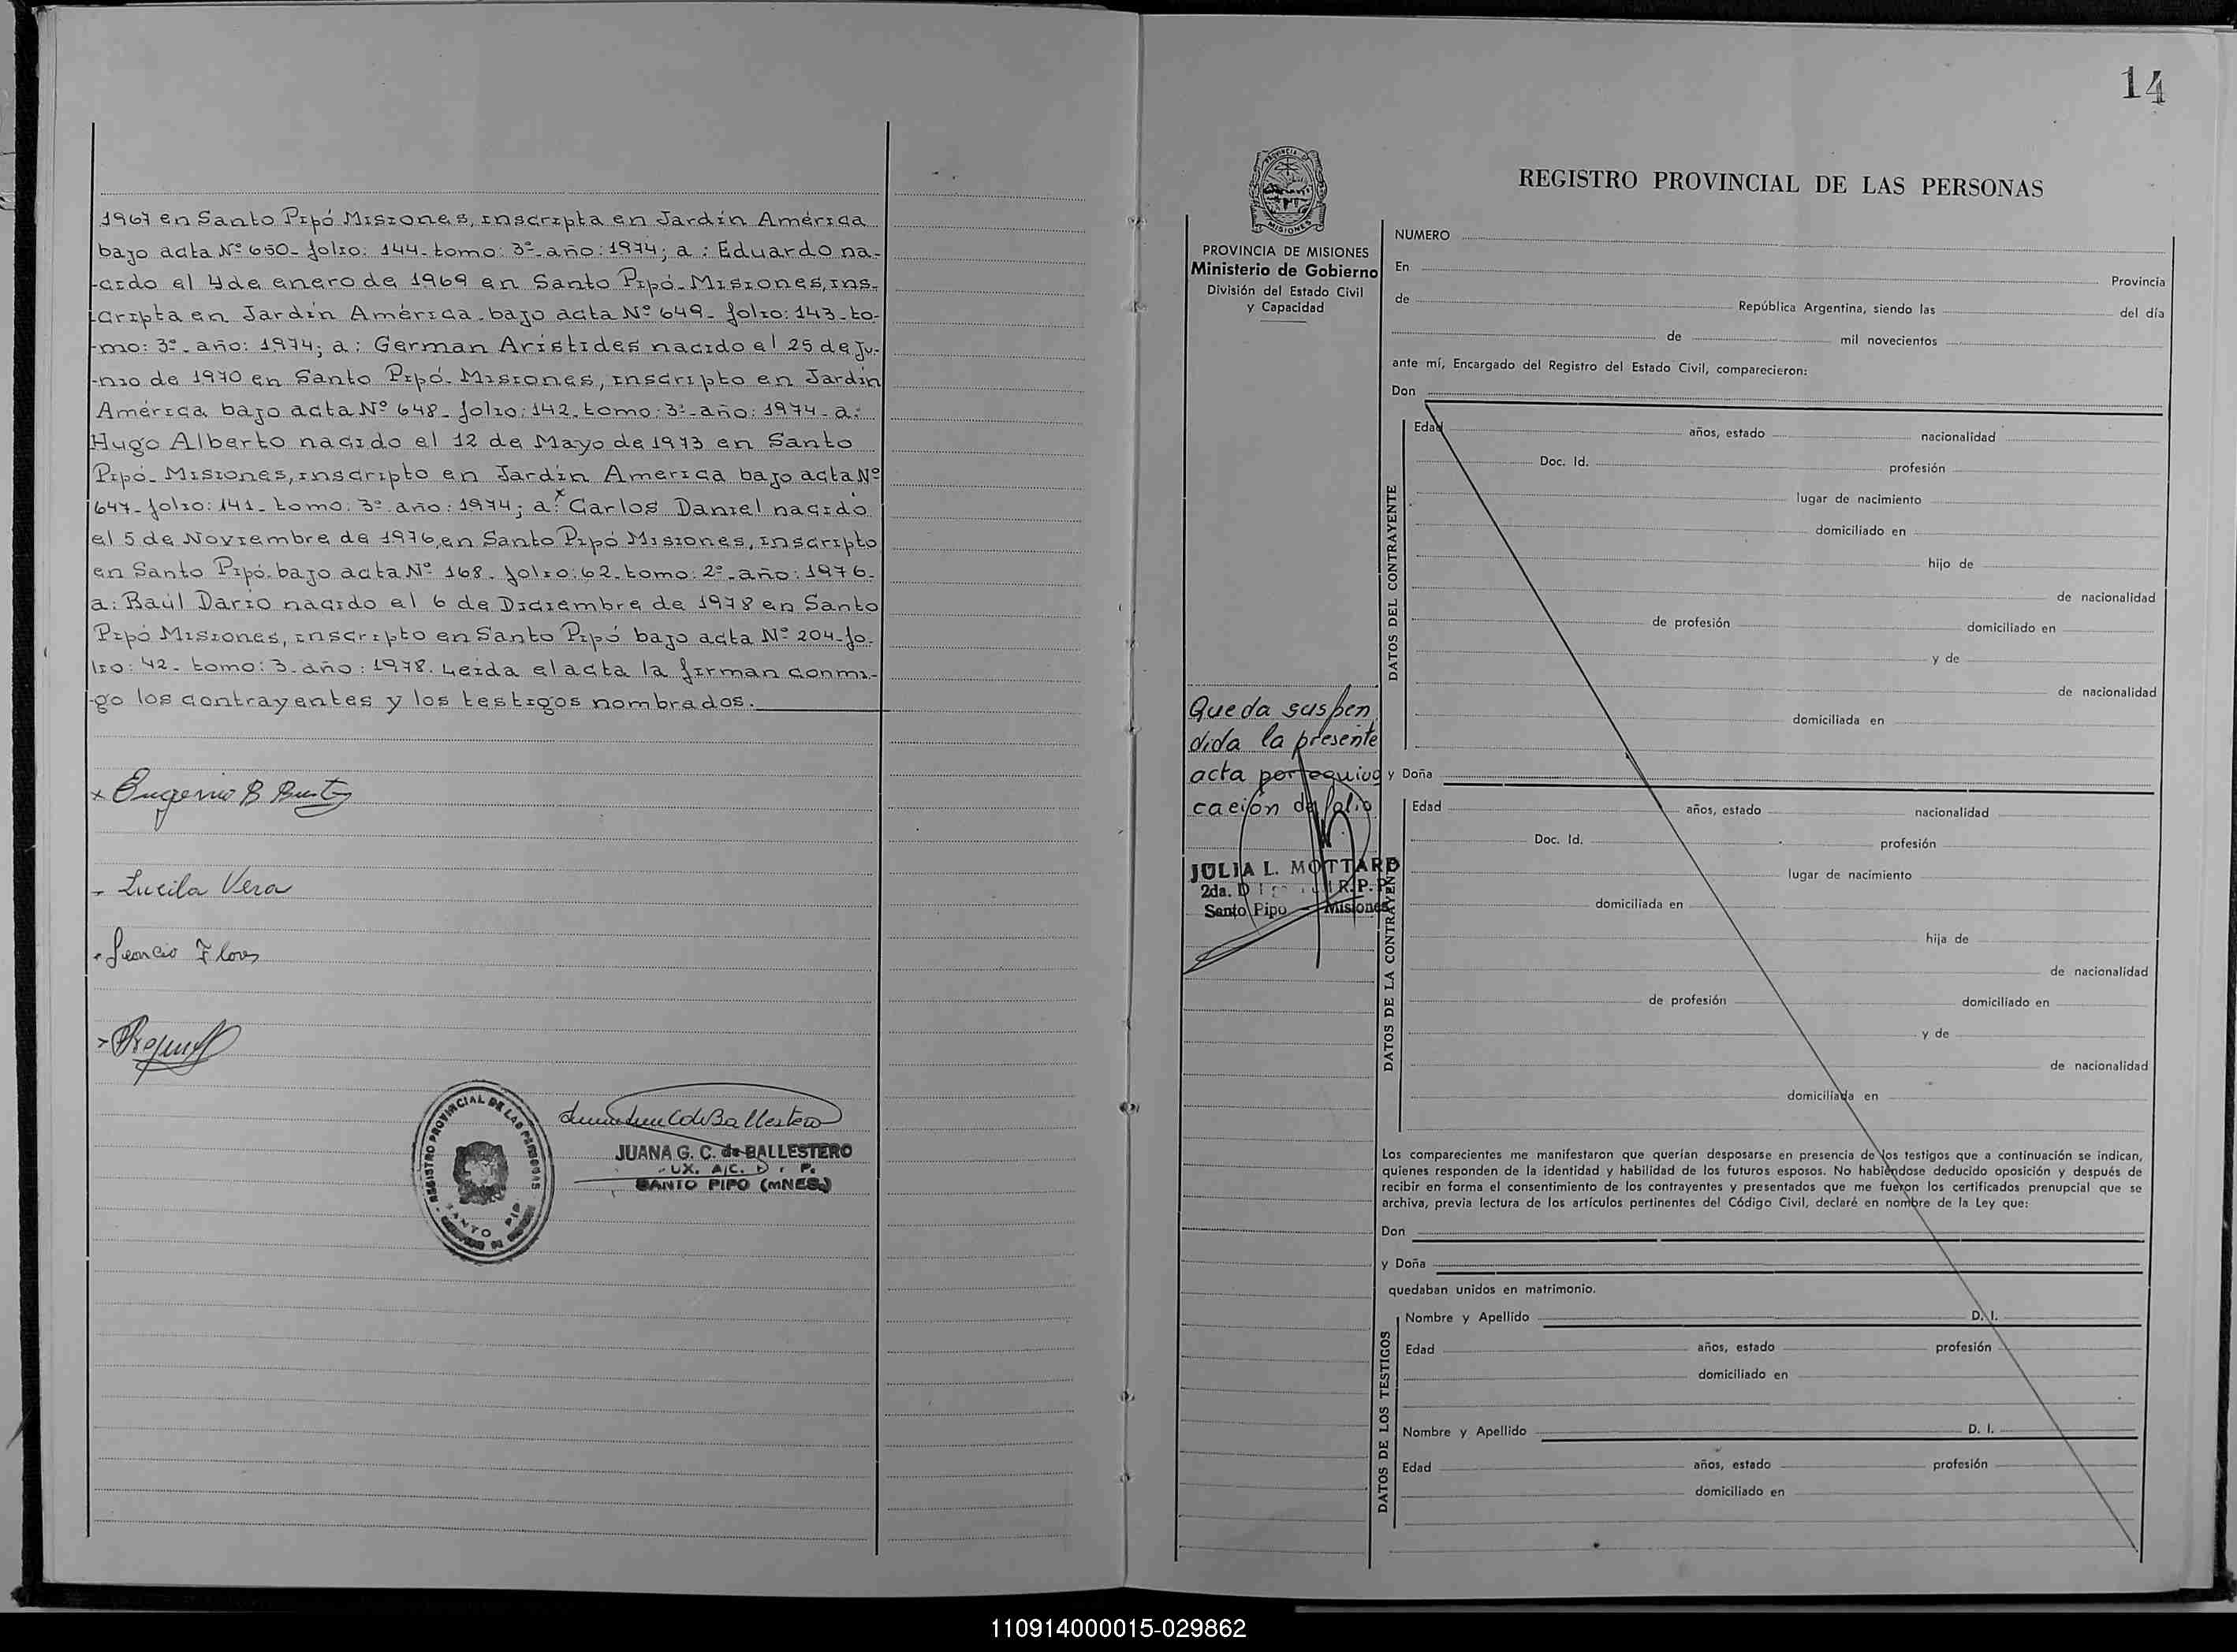 1967 en Santo Pipó Misiones, inscripta en Jardín América
bajo acta Nº 650- folio: 144- tomo: 3º- año: 1974; a: Eduardo na-
-cido el 4 de enero de 1969 en Santo Pipó- Misiones, ins-
cripta en Jardín América- bajo acta Nº 649- folio: 143- to-
-mo: 3º- año: 1974; a: German Aristides nacido el 25 de Ju-
-nio de 1970 en Santo Pipó- Misiones, inscripto en Jardín
América bajo acta Nº 648- folio: 142- tomo: 3º- año: 1974- a:
Hugo Alberto nacido el 12 de Mayo de 1973 en Santo
Pipó- Misiones, inscripto en Jardín America bajo acta Nº
647- folio: 141- tomo: 3º año: 1974; a: Carlos Daniel nacido
el 5 de Noviembre de 1976, en Santo Pipó Misiones, inscripto
en Santo Pipó- bajo acta Nº 168- folio: 62- tomo: 2º- año: 1976-
a: Raúl Dario nacido el 6 de Diciembre de 1978 en Santo
Pipó Misiones, inscripto en Santo Pipó bajo acta Nº 204- fo-
lio: 42- tomo: 3- año: 1978. Leida el acta la firman conmi-
-go los contrayentes y los testigos nombrados.
Eugenio B
Lucila Vera
Flores
REGISTRO PROVINCIAL DE LAS PERSONAS
SANTO PIPO
C de Ballestero
JUANA G. C. de BALLESTERO
SANTO PIPO (mNES.)
14
PROVINCIA DE MISIONES
PROVINCIA DE MISIONES
Ministerio de Gobierno
División del Estado Civil
y Capacidad
Queda suspen
dida la presente
acta por equivo
cación de folio
JULIA L. MOTTARD
2da. R.P.P.
Santo Pipo - Misiones
REGISTRO PROVINCIAL DE LAS PERSONAS
NUMERO
En Provincia
de República Argentina, siendo las del día
de mil novecientos
ante mí, Encargado del Registro del Estado Civil, comparecieron:
Don
DATOS DEL CONTRAYENTE
Edad años, estado nacionalidad
Doc. Id. profesión
lugar de nacimiento
domiciliado en
hijo de
de nacionalidad
de profesión domiciliado en
y de
de nacionalidad
domiciliada en
y Doña
DATOS DE LA CONTRAYENTE
Edad años, estado nacionalidad
Doc. Id. profesión
lugar de nacimiento
domiciliada en
hija de
de nacionalidad
de profesión domiciliado en
y de
de nacionalidad
domiciliada en
Los comparecientes me manifestaron que querían desposarse en presencia de los testigos que a continuación se indican,
quienes responden de la identidad y habilidad de los futuros esposos. No habiéndose deducido oposición y después de
recibir en forma el consentimiento de los contrayentes y presentados que me fueron los certificados prenupcial que se
archiva, previa lectura de los artículos pertinentes del Código Civil, declaré en nombre de la Ley que:
Don
y Doña
quedaban unidos en matrimonio.
DATOS DE LOS TESTIGOS
Nombre y Apellido D. I.
Edad años, estado profesión
domiciliado en
Nombre y Apellido D. I.
Edad años, estado profesión
domiciliado en
110914000015-029862